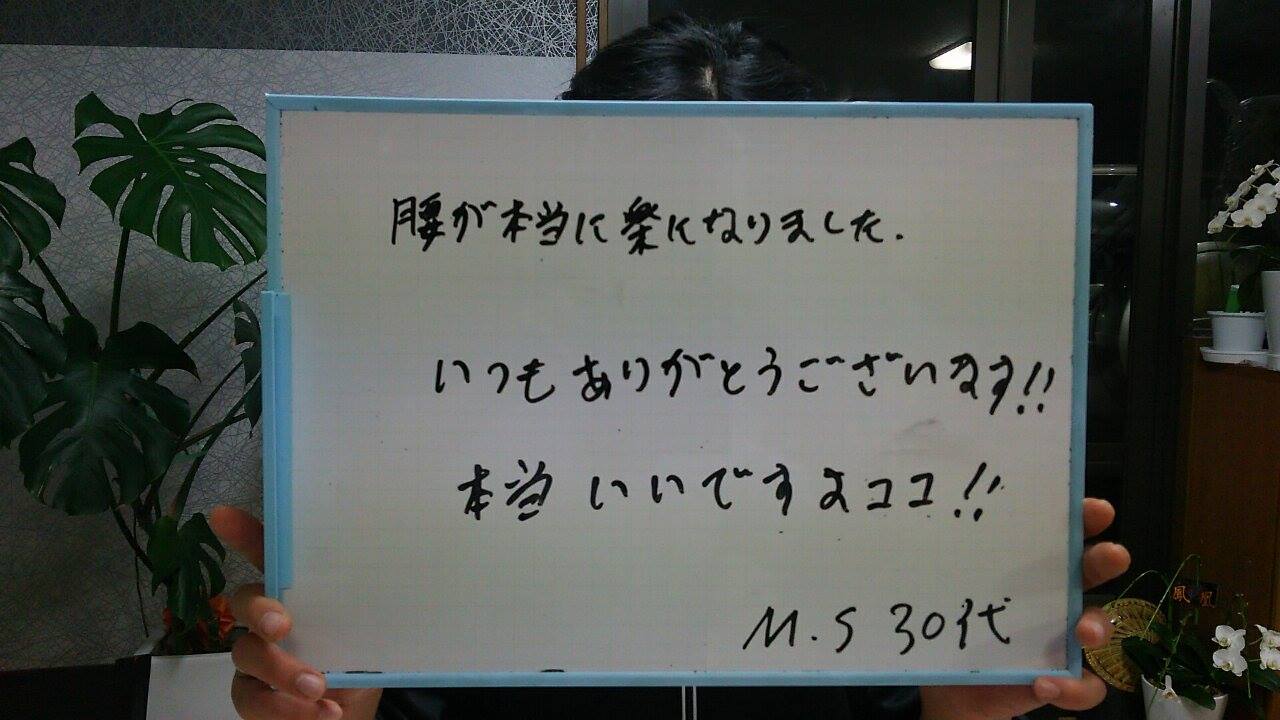 腰が本当に楽になりました.
いつもありがとうございます!!
本当いいですよココ!!
M.S 30代
鳳凰